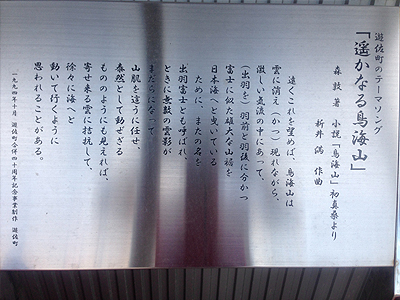 遊佐町のテーマソング
「遥かなる鳥海山」
森敦著 小説「鳥海山」初真桑より
新井満 作曲
遠くこれを望めば、鳥海山は
雲に消え(かつ)現れながら、
激しい気流の中にあって、
(出羽を)羽前と羽後に分かつ
富士に似た雄大な山裾を
日本海へと曳いている
ために、またの名を
出羽富士とも呼ばれ、
ときに無数の雲影が
まだらになって
山肌を這うに任せ、
泰然として動ぜざる
もののようにも見えれば、
寄せ来る雲に拮抗して、
徐々に海へと
動いて行くように
思われることがある。
一九九四年十月 遊佐町合併四十周年記念事業制作 遊佐町